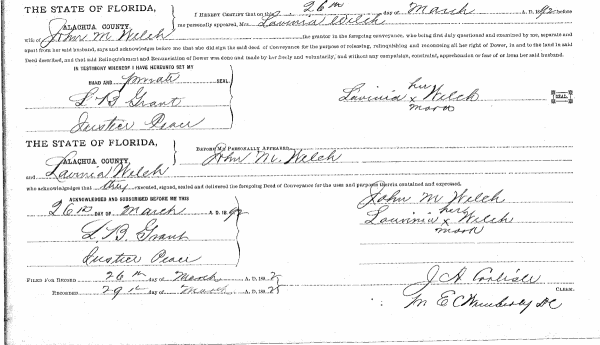 THE STATE OF FLORIDA, I HEREBY CERTIFY that on this 26th day of March A. D. 1892 before
ALACHUA COUNTY. me personally appeared, Mrs. Lavinia Welch
wife of John M Welch the grantor in the foregoing conveyance, who being first duly questioned and examined by me, separate and
apart from her said husband, says and acknowledges before me that she did sign the said deed of Conveyance for the purpose of releasing, relinquishing and renouncing all her right of Dower, in and to the land in said
Deed described, and that said Relinquishment and Renunciation of Dower was done and made by her freely and voluntarily, and without any compulsion, constraint, apprehension or fear of or from her said husband.
IN TESTIMONY WHEREOF I HAVE HEREUNTO SET MY
HAND AND private SEAL.
L B Grant
Justice Peace
her
Lavinia x Welch SEAL.
mark
THE STATE OF FLORIDA,
ALACHUA COUNTY. BEFORE ME PERSONALLY APPEARED John M. Welch
and Lavinia Welch
who acknowledges that they executed, signed, sealed and delivered the foregoing Deed of Conveyance for the uses and purposes therein contained and expressed.
ACKNOWLEDGED AND SUBSCRIBED BEFORE ME THIS
26th DAY OF March A. D. 1892
L. B. Grant
Justice Peace
John M Welch
her
Louvinia x Welch
mark
FILED FOR RECORD 26th day of March A. D. 1892
RECORDED 29th day of March A. D. 1892
J A Carlisle
CLERK.
M E C Kimberly DC